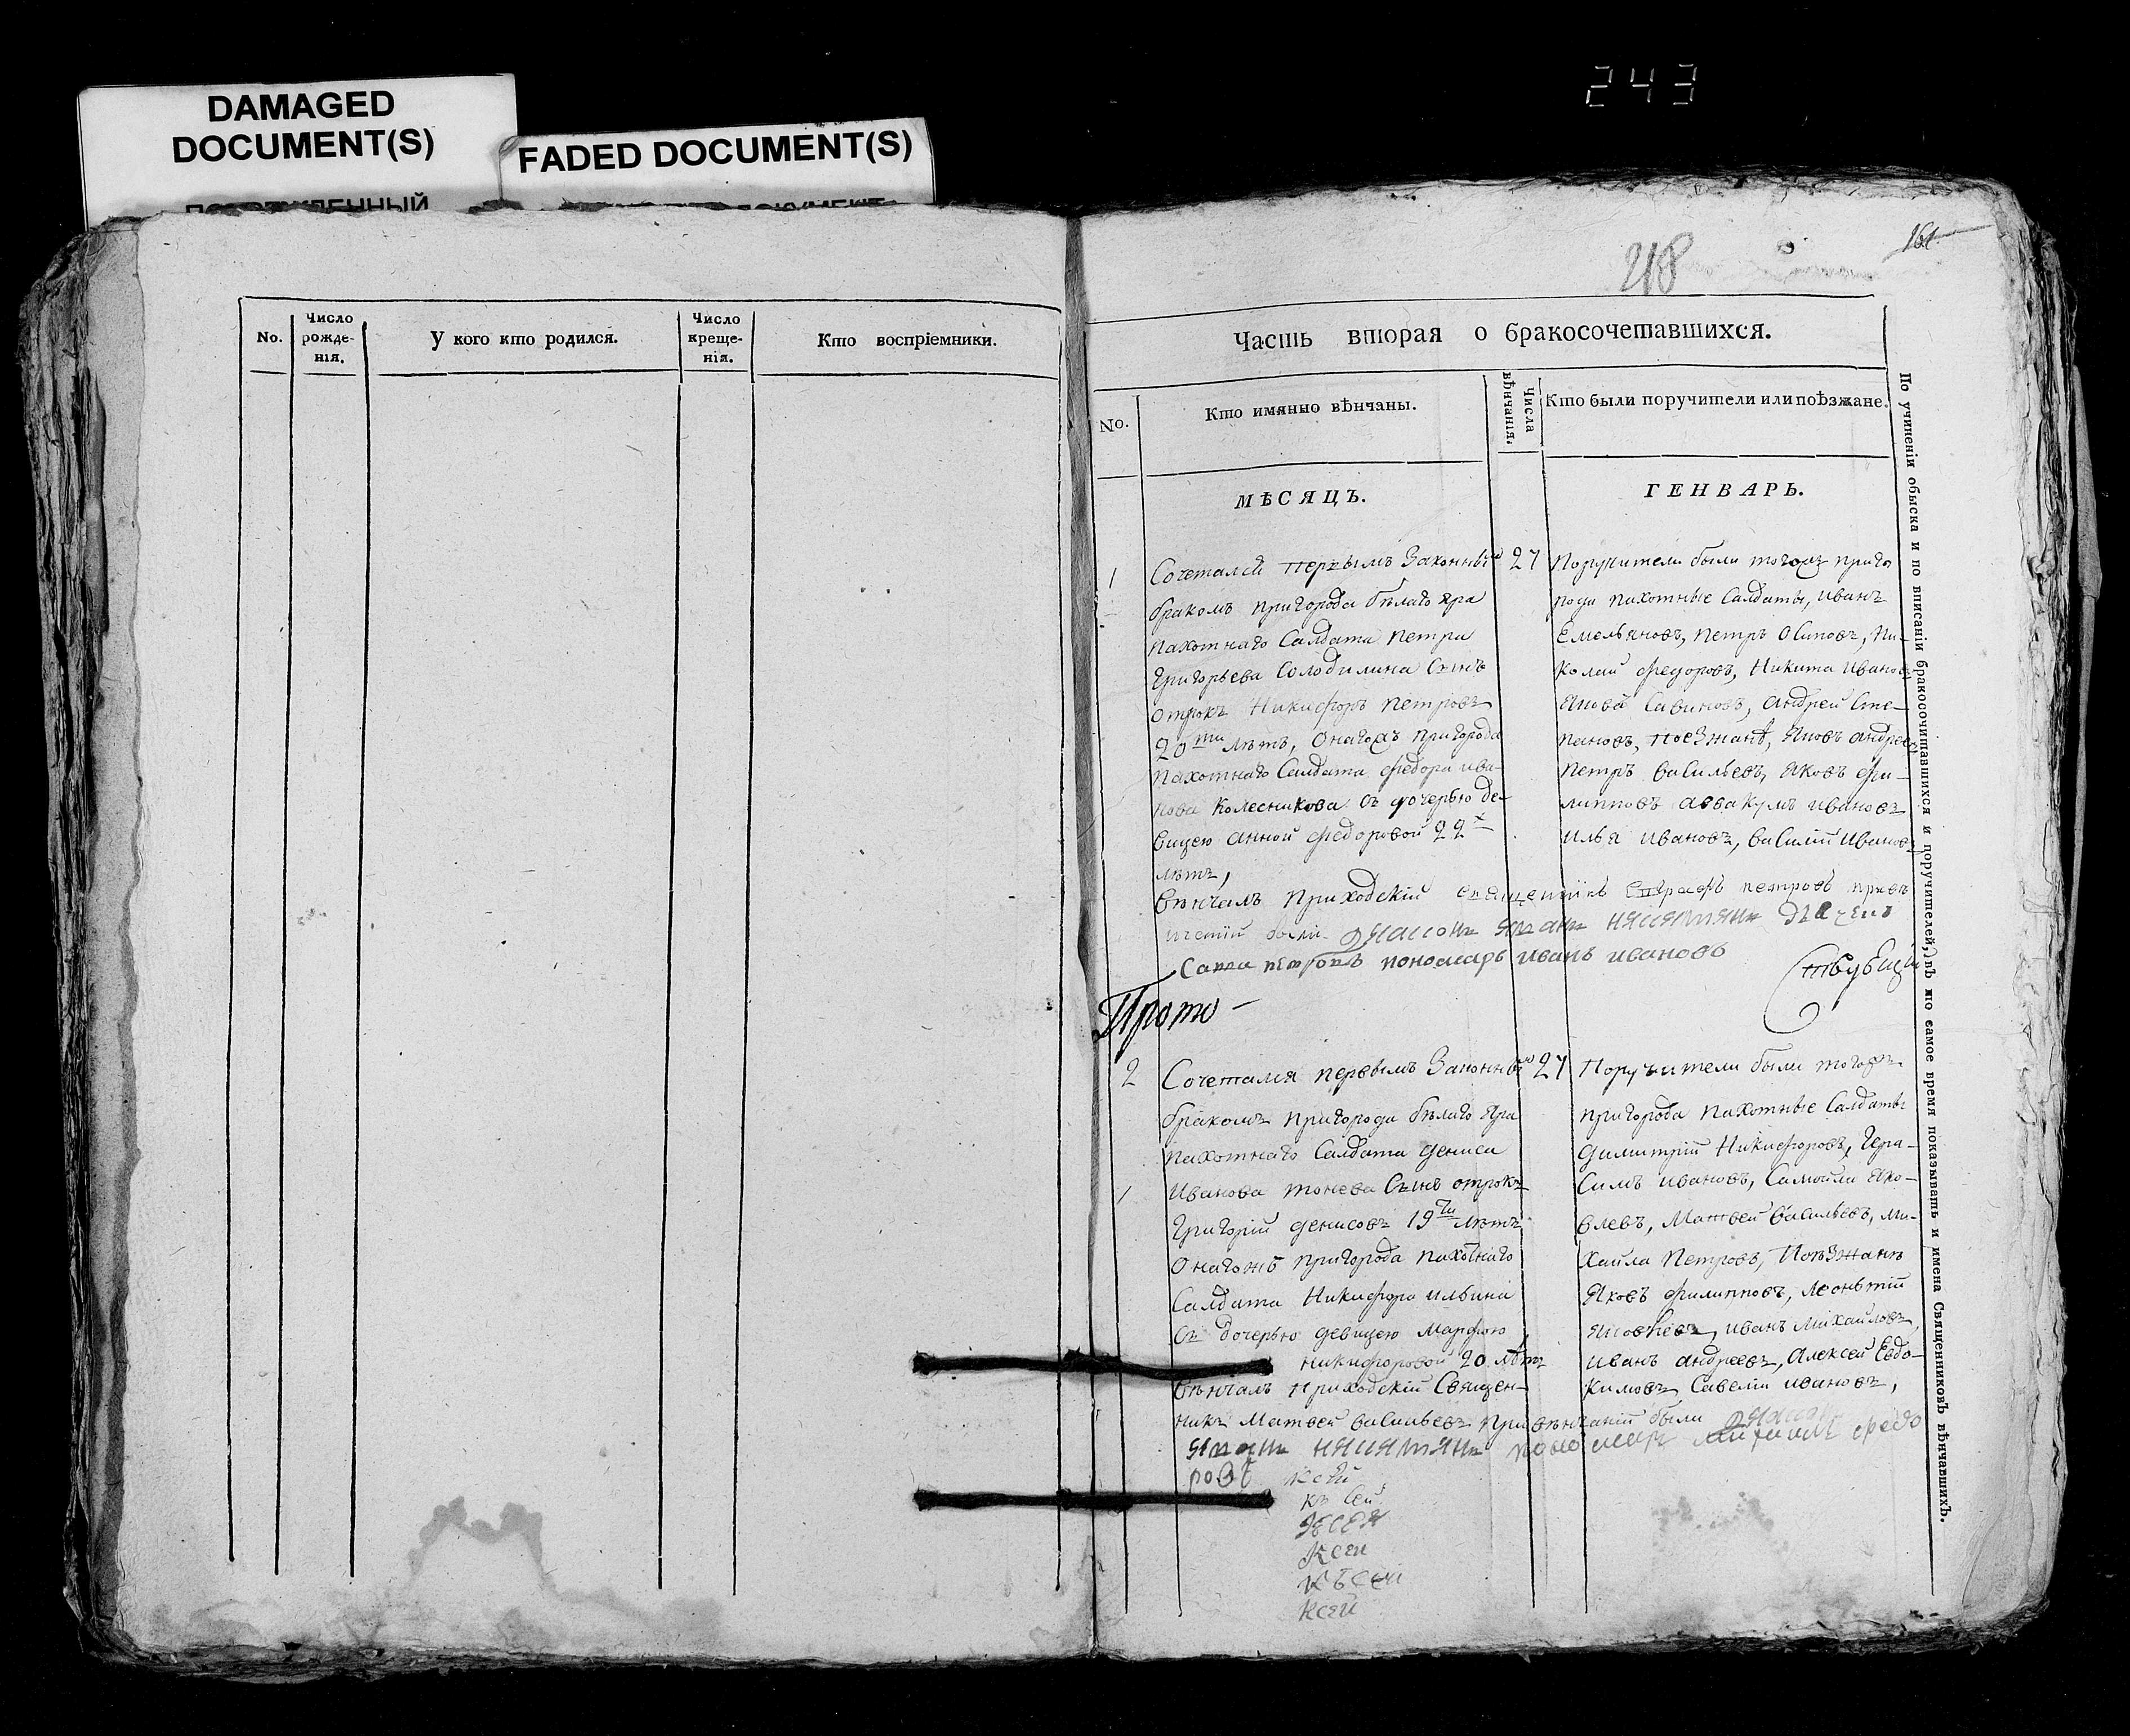 DAMAGED
DOCUMENT(S)
FADED DOCUMENT(S)
243
218
161
No.
Число рожде-нія.
У кого кто родился.
Число креще-нія.
Кто воспріемники.
Часть вторая о бракосочетавшихся.
No.
Кто имянно вѣнчаны.
Числа вѣнчанія.
Кто были поручители или поѣзжане.
МѢСЯЦЪ.
ГЕНВАРЬ.
1
Сочетался первымъ Законны
бракомъ пригорода бѣлаго яра
пахотнаго Салдата петра
Григорьева Солодилина Сынъ
отрокъ Никифоръ петровъ
20ти лѣтъ, онагожъ пригорода
пахотнаго Салдата федора ива-
нова Колесникова съ дочерью де-
вицею анной федоровой 22х
лѣтъ,
27
Поручители были тогожъ приго
рода пахотные Салдаты, иванъ
Емельяновъ, петръ Осиповъ, Ни-
колай федоровъ, Никита Ивановъ
Савиновъ, андрей Сте-
пановъ, поезжанѣ, Яковъ андреевъ
петръ васильевъ, яковъ фи-
липповъ аввакумъ ивановъ
илья ивановъ, василій ивановъ
Вѣнчалъ приходскій священникъ петровъ
были
петровъ пономарь иванъ ивановъ
Прото-
2
Сочетался первымъ Законны
бракомъ пригорода бѣлаго Яра
пахотнаго Салдата дениса
Иванова тонева Сынъ отрокъ
Григорій денисовъ 19ти лѣтъ
онагожъ пригорода пахотнаго
Салдата Никифора ильина
Съ дочерью девицею марфою
никифоровой 20 лѣтъ
27
Поручители были тогожъ
пригорода пахотные Салдаты
димитрій Никифоровъ, Гера-
симъ ивановъ, Самойла яко-
влевъ, Матвей васильевъ, ми-
хайла Петровъ, Поѣзжанѣ
Яковъ филипповъ, леонътій
яковлевъ, иванъ михайловъ,
иванъ андреевъ, Алексей Евдо-
кимовъ Савелій ивановъ,
Вѣнчалъ приходскій Священ-
никъ Матвей васильевъ при вѣнчаніи были
федо
ровъ ксей
къ сей
ксей
ксеи
къ сеи
ксей
По учиненіи обыска и по вписаніи бракосочитавшихся и поручителей, въ то самое время показывать и имена Священниковъ вѣнчавшихъ.